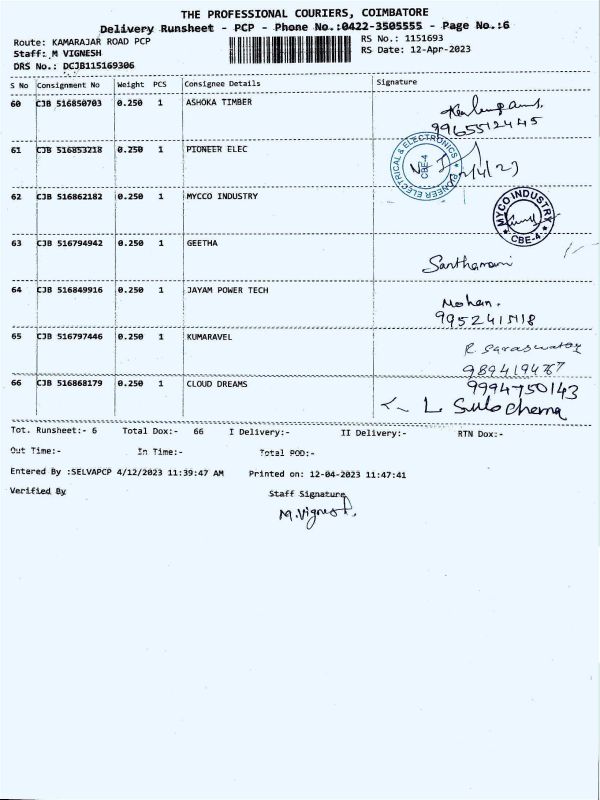 THE PROFESSIONAL COURIERS, COIMBATORE
Delivery Runsheet - PCP - Phone No.:0422-3505555 - Page No.:6
Route: KAMARAJAR ROAD PCP
RS No.: 1151693
Staff: M VIGNESH
RS Date: 12-Apr-2023
DRS No.: DCJB115169306
S No Consignment No Weight PCS Consignee Details Signature
60 CJB 516850703 0.250 1 ASHOKA TIMBER
9965512445
61 CJB 516853218 0.250 1 PIONEER ELEC
PIONEER ELECTRICAL & ELECTRONICS CBE-4
12/4/23
62 CJB 516862182 0.250 1 MYCCO INDUSTRY
MYCO INDUSTRY CBE-4
63 CJB 516794942 0.250 1 GEETHA
Santhamani
64 CJB 516849916 0.250 1 JAYAM POWER TECH
Mohan.
65 CJB 516797446 0.250 1 KUMARAVEL
R Saraswathy
66 CJB 516868179 0.250 1 CLOUD DREAMS
9994750143
L Sulochema
Tot. Runsheet:- 6 Total Dox:- 66 I Delivery:- II Delivery:- RTN Dox:-
Out Time:- In Time:- Total POD:-
Entered By :SELVAPCP 4/12/2023 11:39:47 AM Printed on: 12-04-2023 11:47:41
Verified By Staff Signature
M.Vignesh.